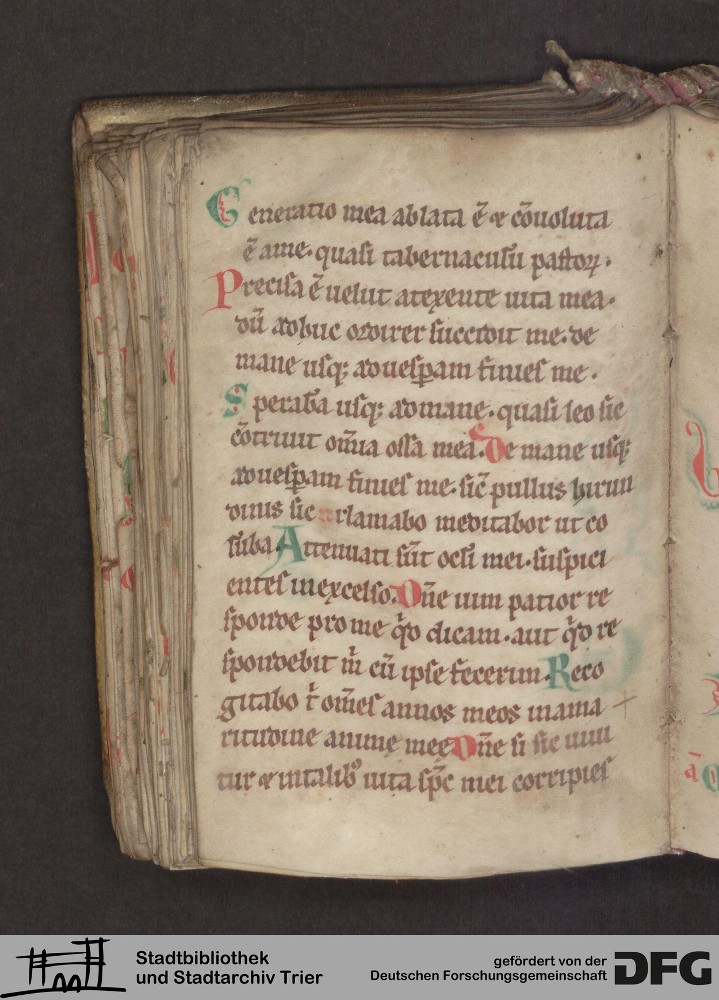 Generatio mea ablata ē ⁊ cōuoluta
ē a me. quasi tabernaculū pastoꝝ.
Precisa ē uelut a texente uita mea.
dū adhuc ordirer succidit me. de
mane usqꝫ ad uesꝑam finies me.
Sperabā usqꝫ ad mane. quasi leo sic
cōtriuit om̄ia ossa mea. De mane usqꝫ
ad uesꝑam finies me. sic̄ pullus hirun
dinis sic clamabo meditabor ut co
lūba. Attenuati sūt oculi mei. suspici
entes in excelso. Dn̄e uim patior re
sponde pro me q̄d dicam. aut q̄d re
spondebit m̄ cū ipse fecerim. Reco
gitabo t̄ om̄es annos meos in ama
ritudine anime mee. Dn̄e si sic uiui
tur ⁊ in talibꝰ uita sp̄c mei corripies
Stadtbibliothek
und Stadtarchiv Trier
gefördert von der
Deutschen Forschungsgemeinschaft
DFG